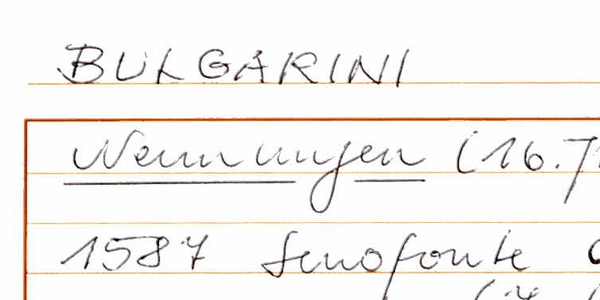 BULGARINI
Nennungen (16.
1587 Senofonte